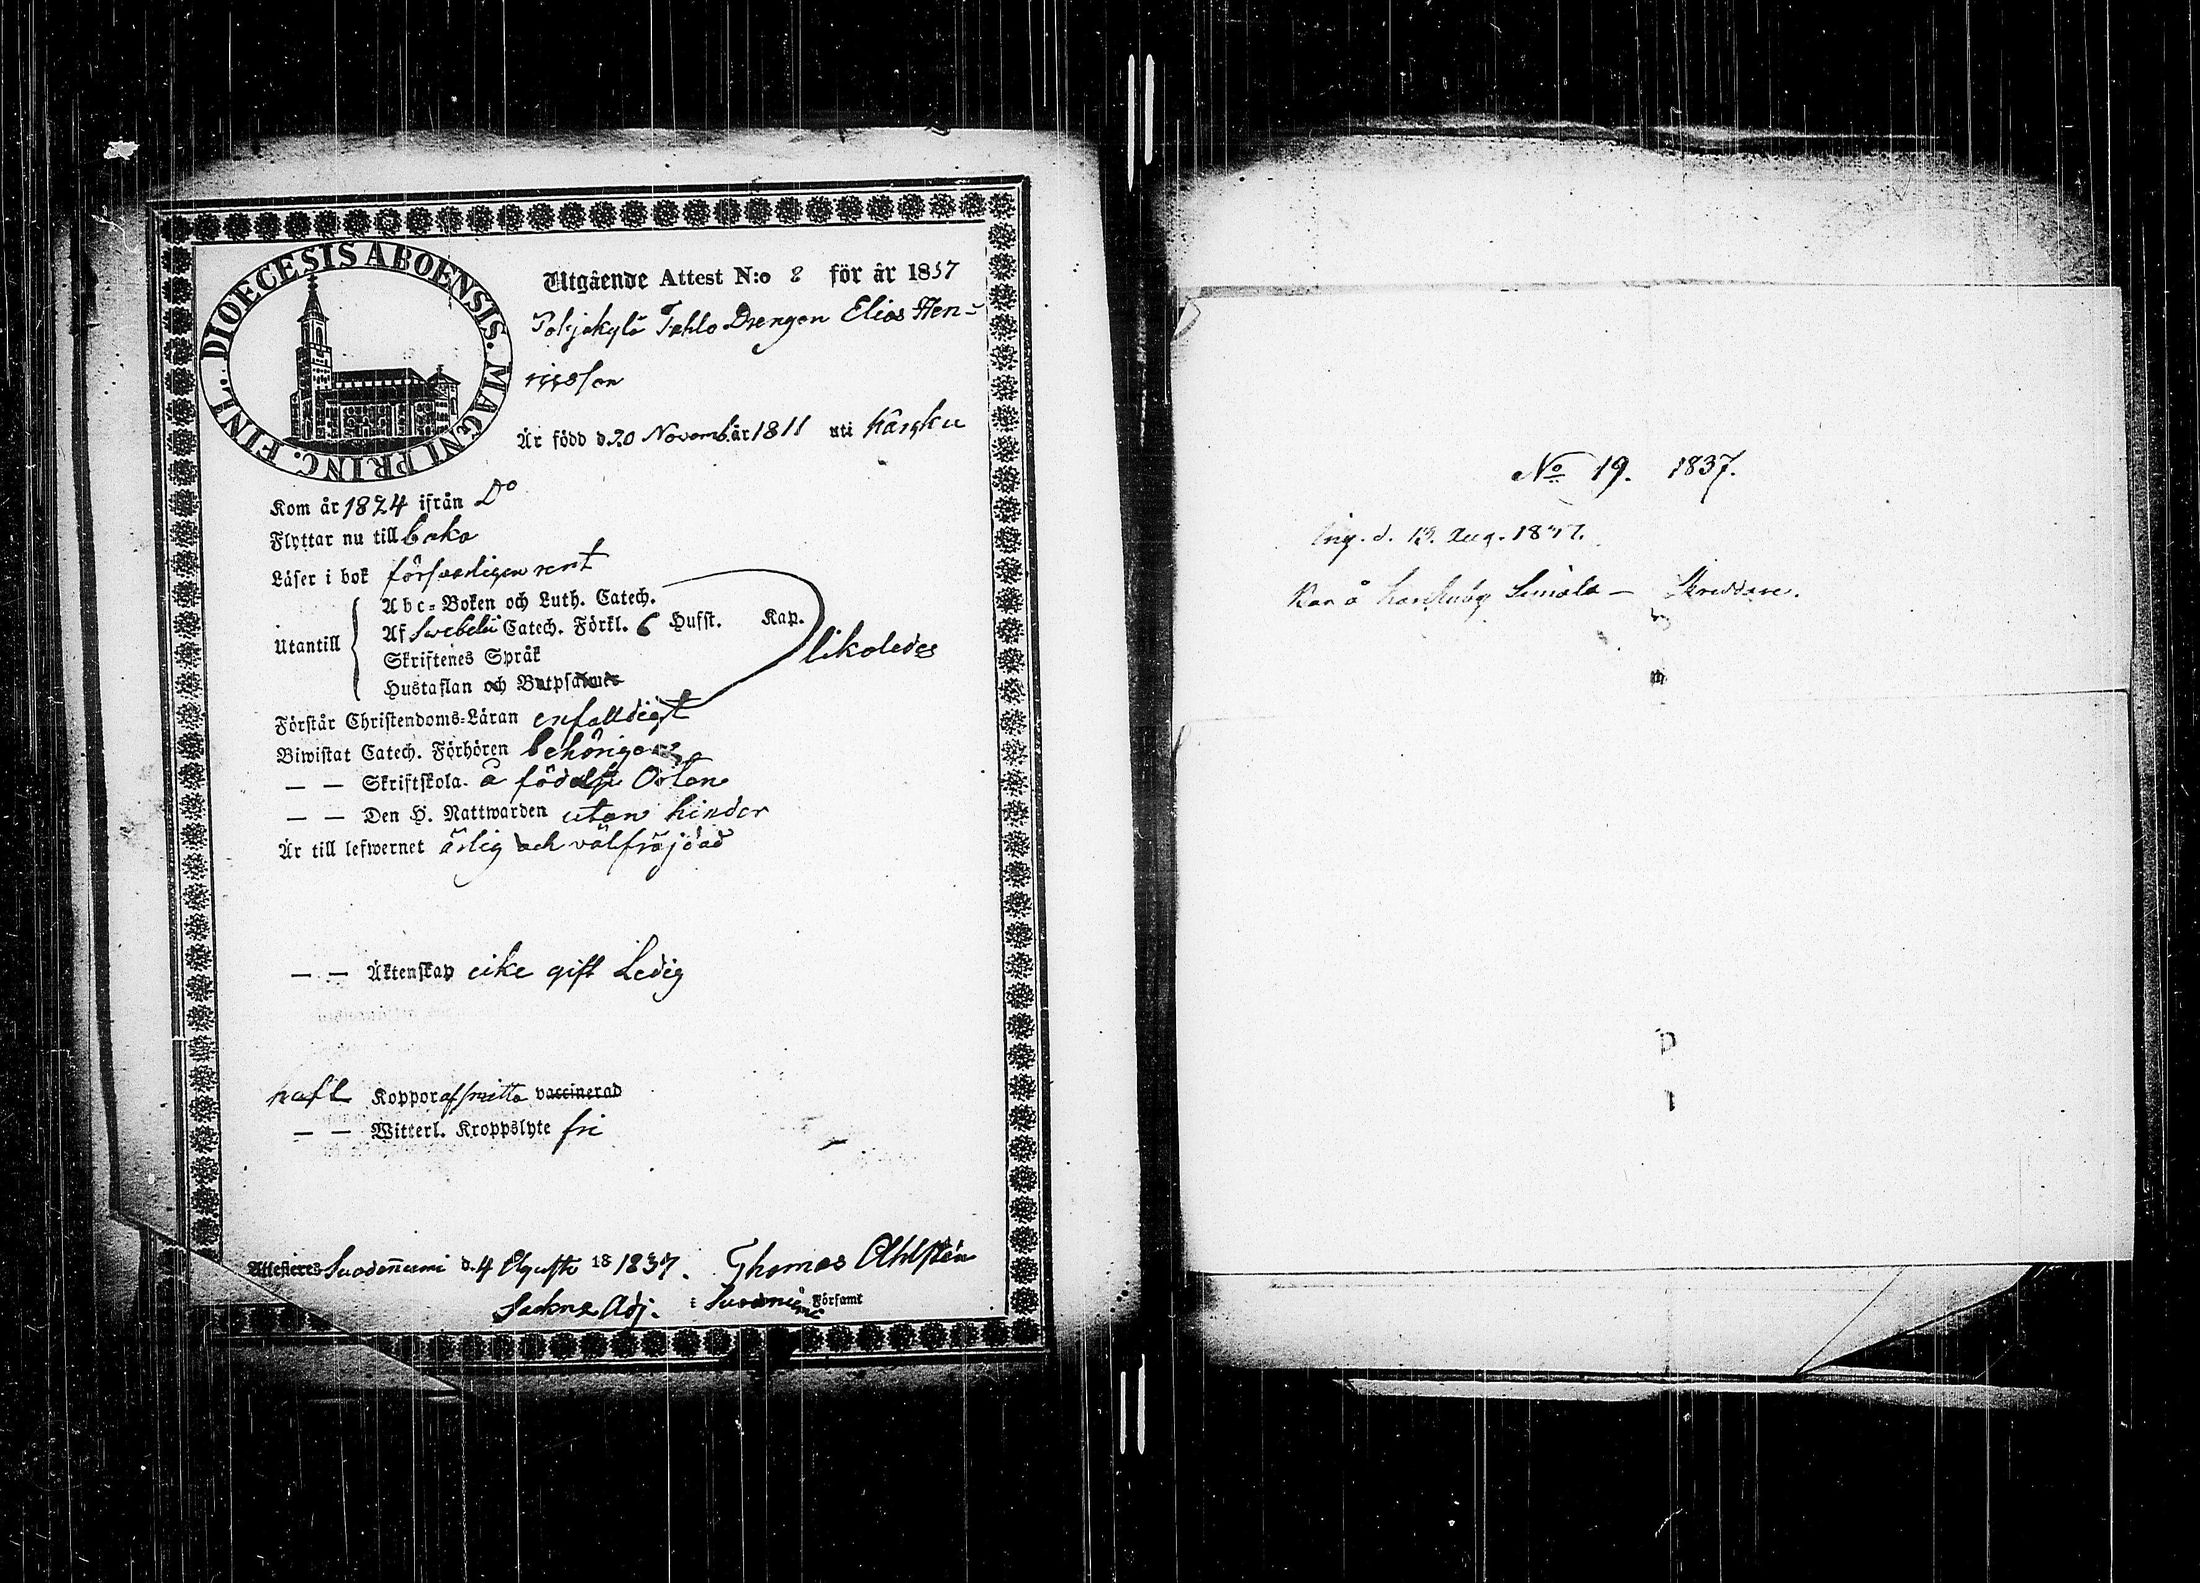 DIOECESIS ABOENSIS. MAGNI PRINC. FINL.
Utgående Attest N:o 8 för år 1837
Pohjakylä Tahlo Drengen Elias Hen-
ricsson
Är född d. 20 Novemb. år 1811 uti Karkku
Kom år 1824 ifrån Do
Flyttar nu till
Läser i bok försvarligen rent
Utantill
Abc-Boken och Luth. Catech.
Af Svebelii Catech. Förkl. 6 Hufst. Kap.
Skriftenes Språk
Hustaflan och Botpsalmer
likaledes
Förstår Christendoms-Läran enfaldigt
Biwistat Catech. Förhören behörigen
— — Skriftskola å födelse Orten
— — Den H. Nattwarden utan hinder
Är till lefwernet ärlig och välfräjdad
— — Äktenskap icke gift Ledig
haft Koppor af smitta vaccinerad
— — Witterl. Kroppslyte fri
Attesteres Suodenniemi d. 4 Augusti 18 1837. Thomas Ahlstén
Adj. i Suodniemi Församl
No 19. 1837.
d. Aug. 1837.